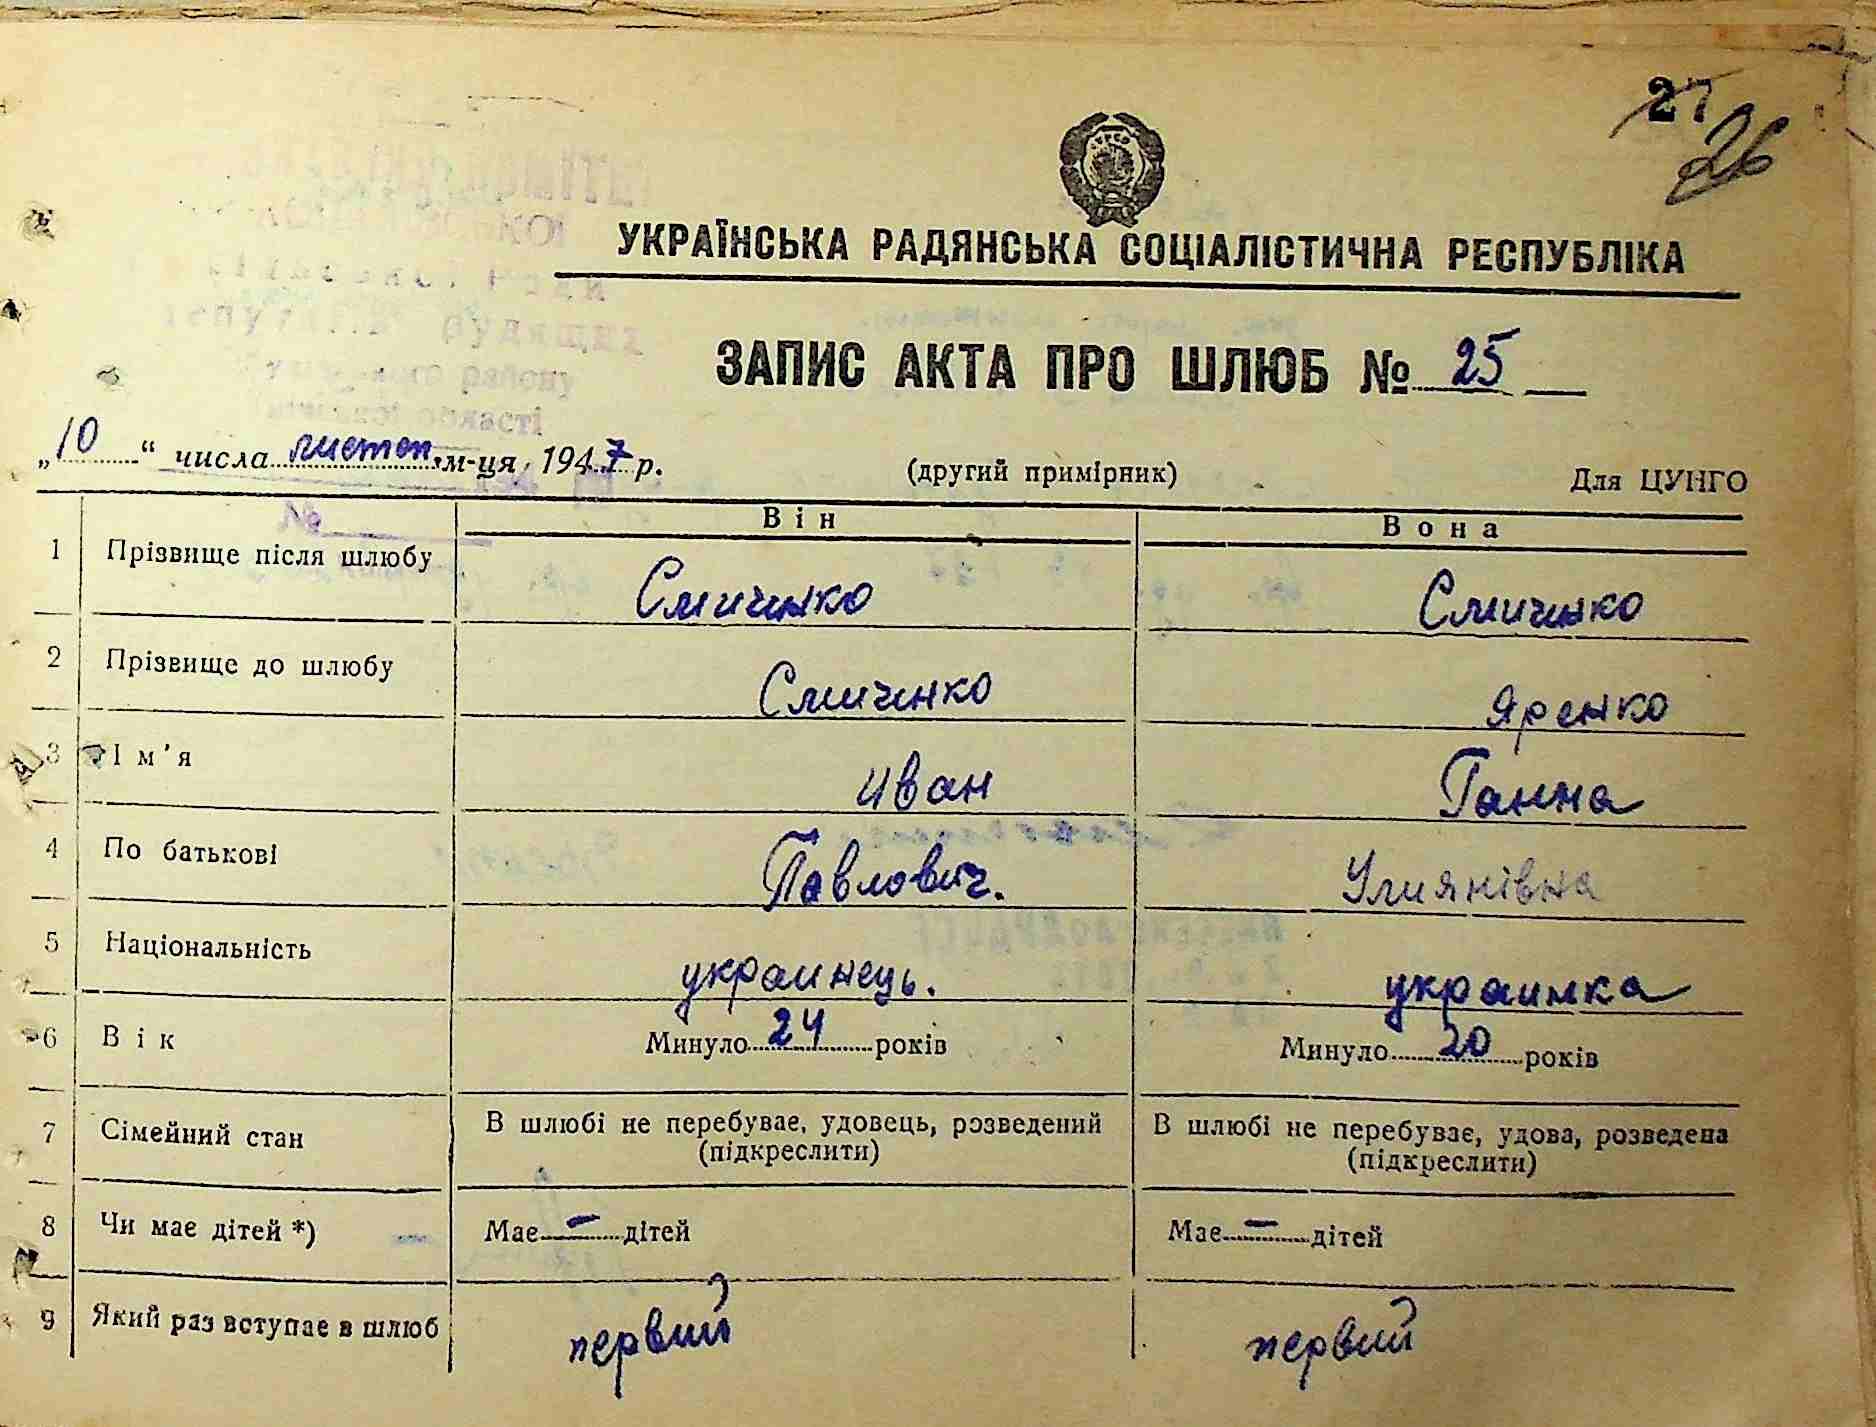 27
26
УКРАЇНСЬКА РАДЯНСЬКА СОЦІАЛІСТИЧНА РЕСПУБЛІКА
ЗАПИС АКТА ПРО ШЛЮБ № 25
„10“ числа листоп. м-ця 1947 р. (другий примірник) Для ЦУНГО
Він Вона
1 Прізвище після шлюбу Смиченко Смиченко
2 Прізвище до шлюбу Смиченко Яренко
3 Ім'я Иван Ганна
4 По батькові Павлович. Улиянівна
5 Національність украинець. украинка
6 Вік Минуло 24 років Минуло 20 років
7 Сімейний стан В шлюбі не перебуває, удовець, розведений В шлюбі не перебуває, удова, розведена
(підкреслити) (підкреслити)
8 Чи має дітей *) Має – дітей Має – дітей
9 Який раз вступає в шлюб первий первий
району
області
№